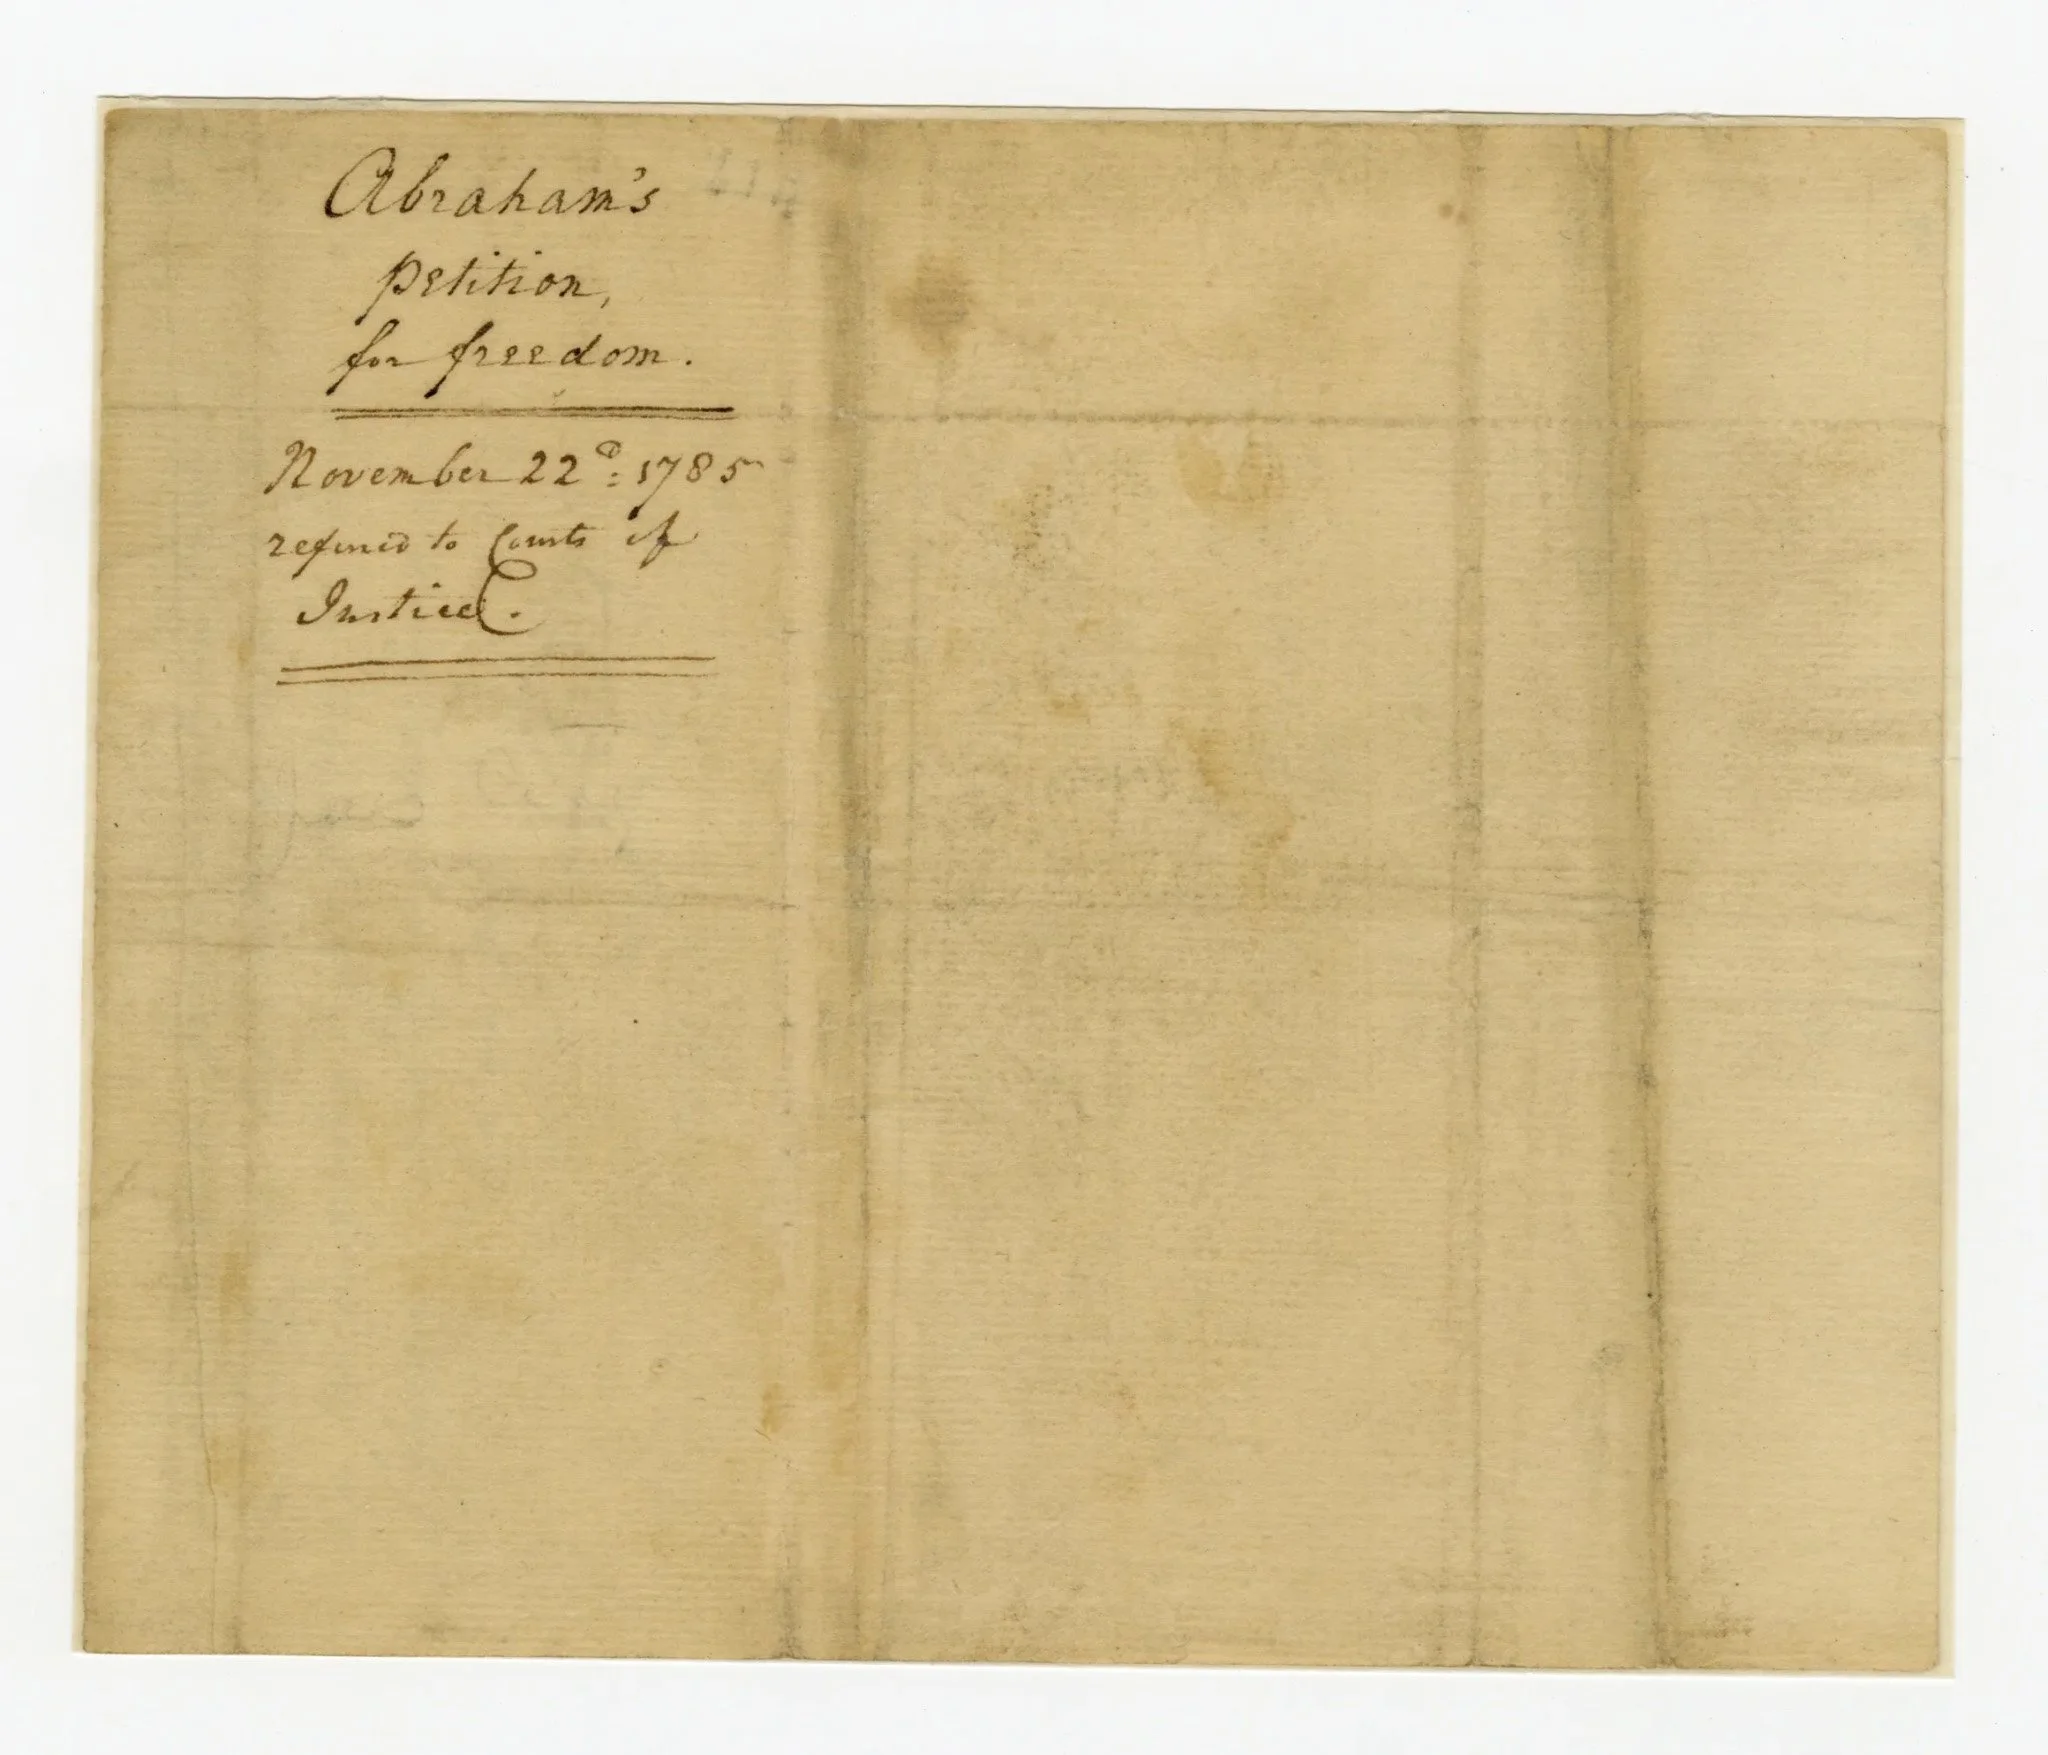 Abraham's
petition,
for freedom.
November 22d: 1785
referred to Courts of
Justice.